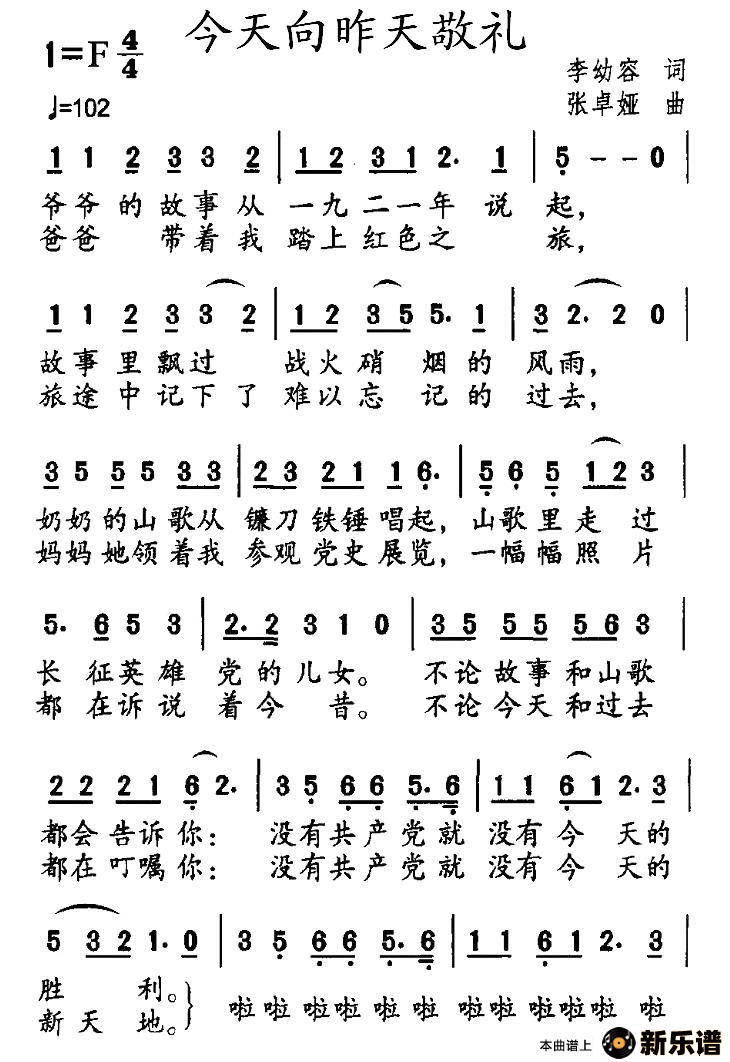 今天向昨天敬礼
1=F 4/4
♩=102
李幼容 词
张卓娅 曲
1 1 2 3 3 2 | 1 2 3 1 2. 1 | 5 - - 0 |
爷爷的故事从一九二一年说起，
爸爸 带着我踏上红色之 旅，
1 1 2 3 3 2 | 1 2 3 5 5. 1 | 3 2. 2 0 |
故事里飘过 战火硝烟的风雨，
旅途中记下了难以忘记的过去，
3 5 5 5 3 3 | 2 3 2 1 1 6. | 5 6 5 1 2 3 |
奶奶的山歌从镰刀铁锤唱起，山歌里走过
妈妈她领着我参观党史展览，一幅幅照片
5. 6 5 3 | 2. 2 3 1 0 | 3 5 5 5 5 6 3 |
长征英雄党的儿女。 不论故事和山歌
都在诉说着今 昔。 不论今天和过去
2 2 2 1 6 2. | 3 5 6 6 5. 6 | 1 1 6 1 2. 3 |
都会告诉你：没有共产党就没有今天的
都在叮嘱你：没有共产党就没有今天的
5 3 2 1. 0 | 3 5 6 6 5. 6 | 1 1 6 1 2. 3 |
胜 利。
新天地。
啦啦 啦啦啦啦 啦啦 啦啦啦 啦
本曲谱上 新乐谱